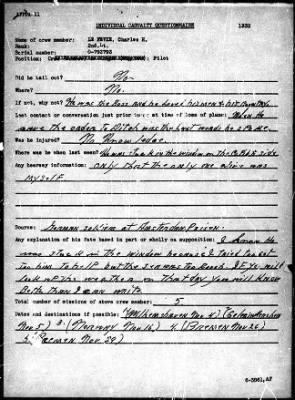 AFPPA-11
INDIVIDUAL CASUALTY QUESTIONNAIRE
Name of crew member: LE FEVRE, Charles H.
Rank: 2nd Lt.
Serial number: O-792793
Position: Pilot
Did he bail out? No.
Where? No.
If not, why not? He was the Boss and he loved his men & his Country.
Last contact or conversation just prior to or at time of loss of plane: When he
gave the order to Ditch was the last words he spoke.
Was he injured? No Knowledge.
Where was he when last seen? He was stuck in the window on the side
Any hearsay information: only that the only one alive was
myself
Source: German soldier at Amsterdam Prison.
Any explanation of his fate based in part or wholly on supposition: I know he
was stuck in the window because I tried to get
to him to help but the sea was too Rough. If you will
look at the weather on that day you will know
Better than I can write.
Total number of missions of above crew member: 5
Dates and destinations of possible: (Wilhemshaven Nov 4)
Nov 5) 3 (Norway Nov 16) 4 (Bremen Nov 26)
5 (Bremen Nov 29)
6-3861,AF